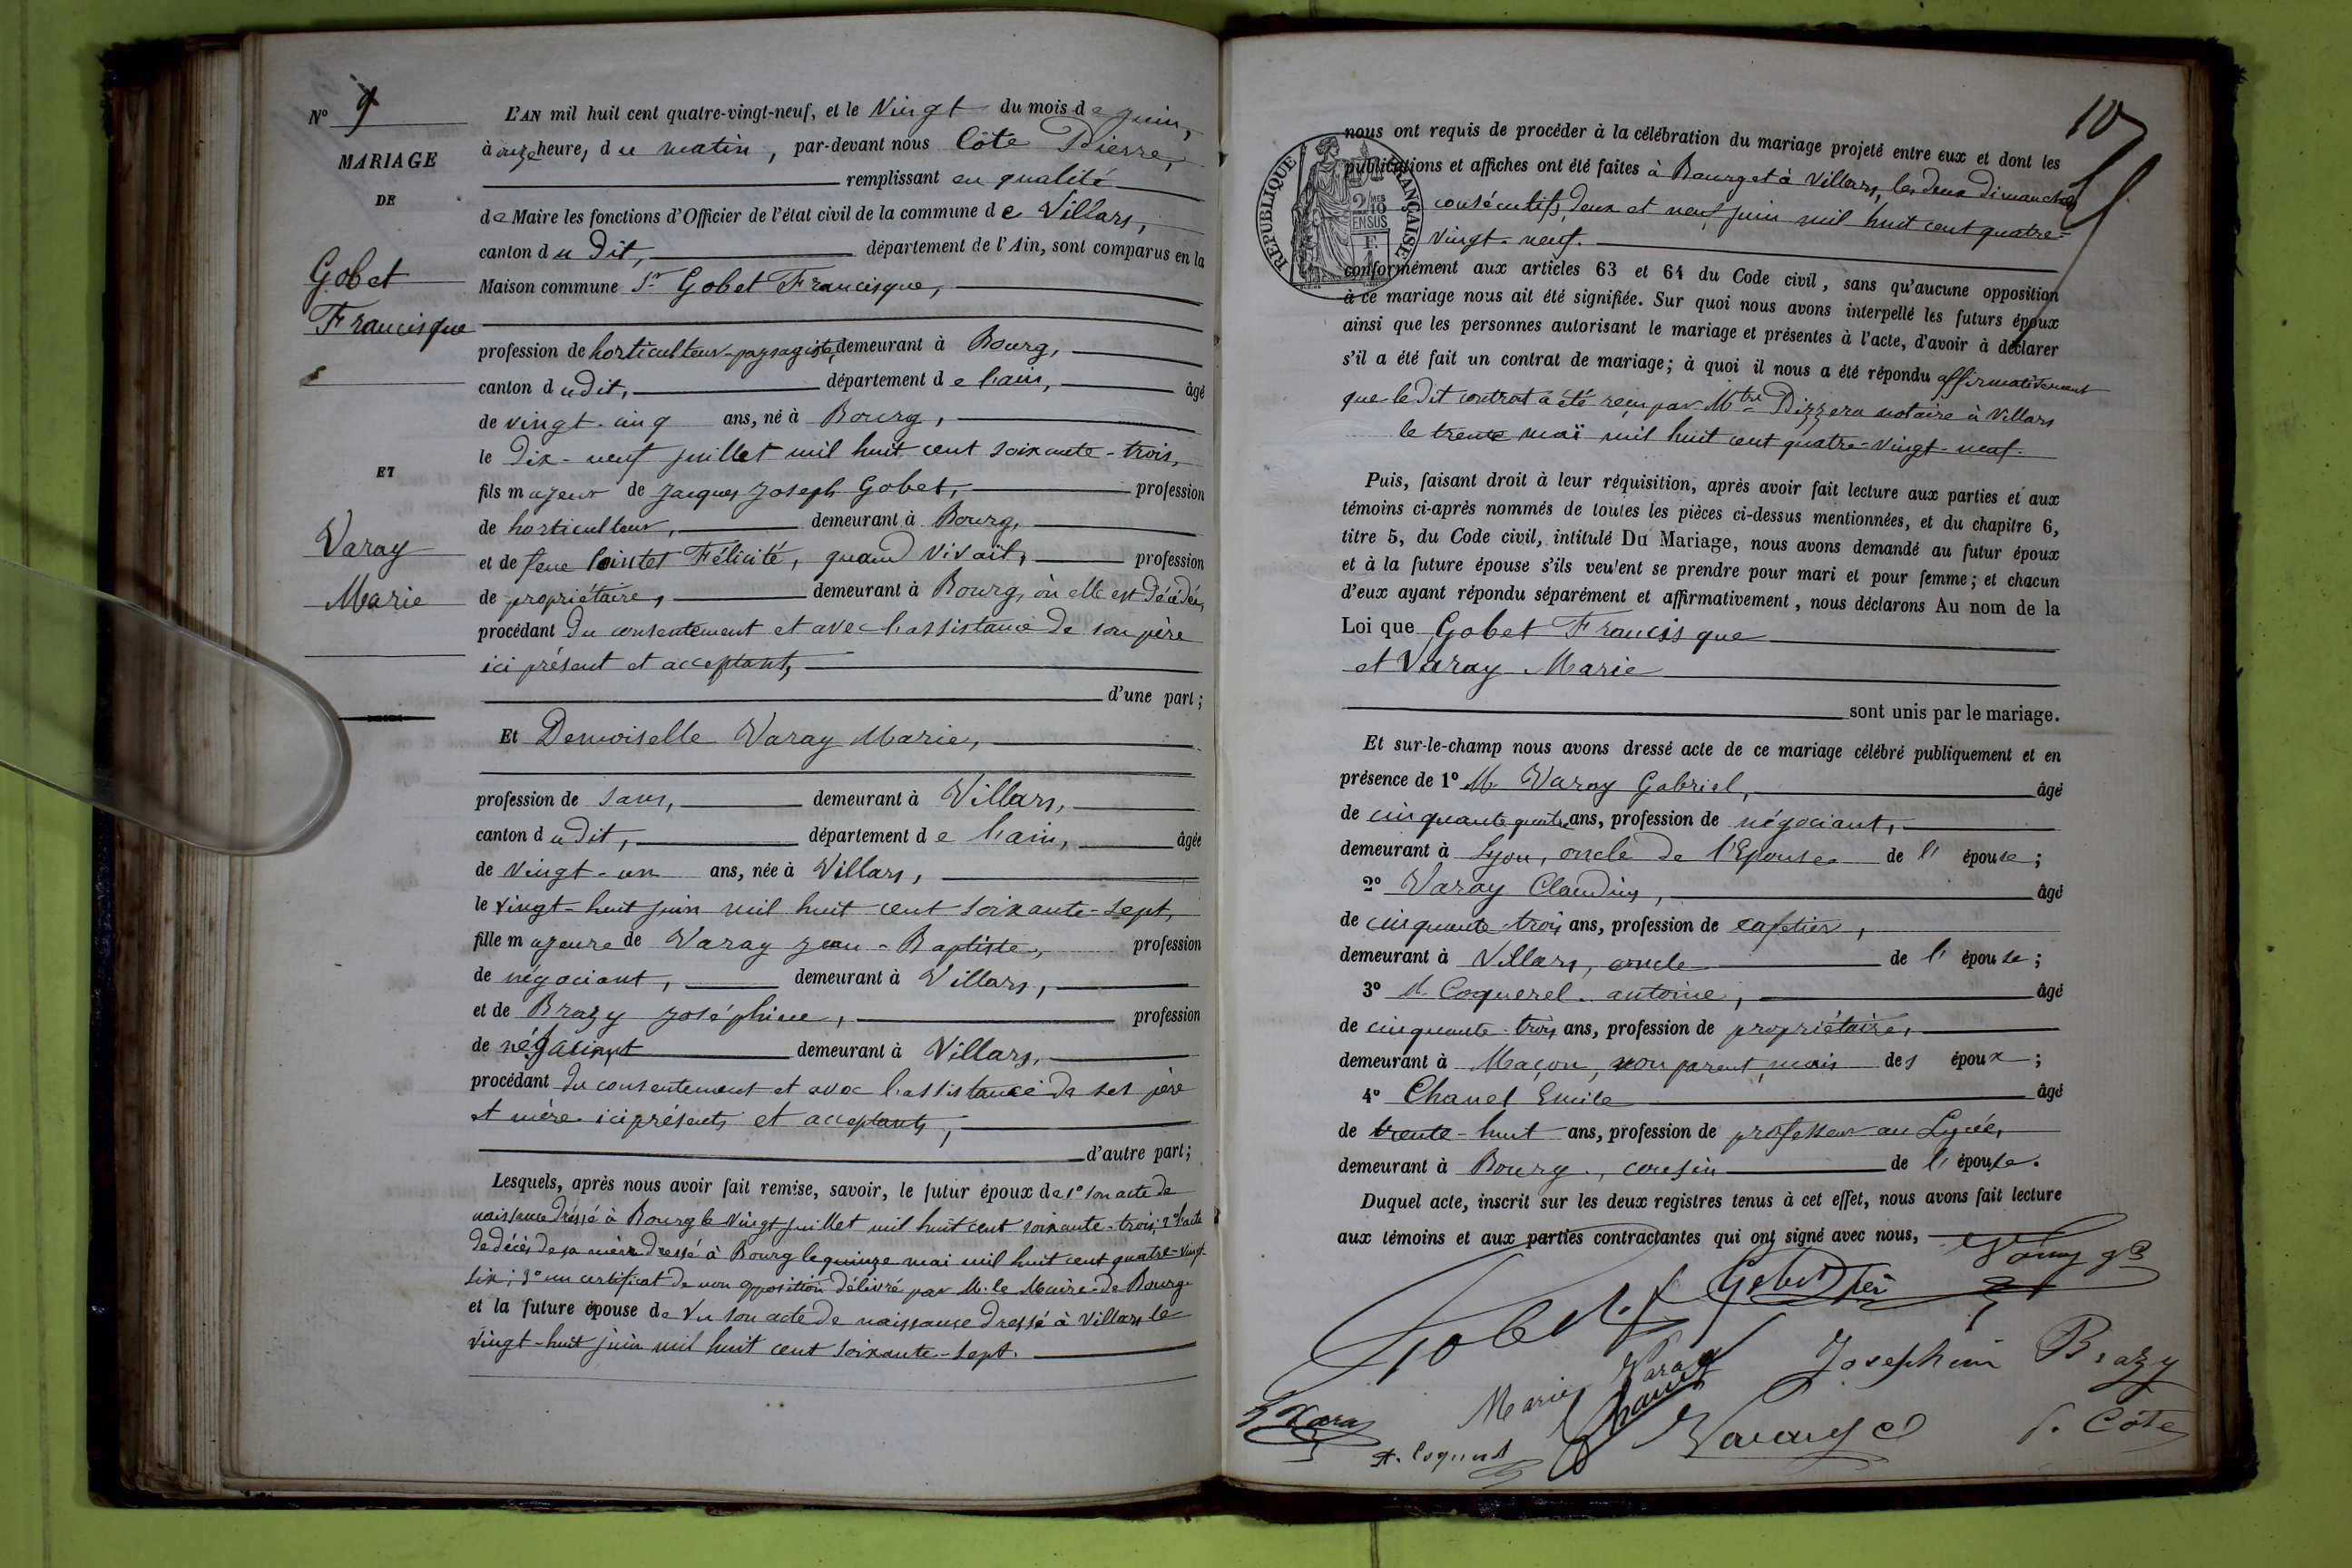 N° 9
MARIAGE
DE
Gobet
Francisque
ET
Varay
Marie
L'AN mil huit cent quatre-vingt-neuf, et le Vingt du mois de juin,
à onze heure, du matin, par-devant nous Côte Pierre,
remplissant en qualité
de Maire les fonctions d'Officier de l'état civil de la commune de Villars,
canton du dit, département de l'Ain, sont comparus en la
Maison commune Sr Gobet Francisque,
profession de horticulteur-paysagiste, demeurant à Bourg,
canton dudit, département de l'ain, âgé
de vingt-cinq ans, né à Bourg,
le dix-neuf juillet mil huit cent soixante-trois,
fils majeur de Jacques Joseph Gobet, profession
de horticulteur, demeurant à Bourg,
et de feue Cointet Félicité, quand vivait, profession
de propriétaire, demeurant à Bourg, où elle est décédée,
procédant du consentement et avec l'assistance de son père
ici présent et acceptant,
d'une part;
Et Demoiselle Varay Marie,
profession de sans, demeurant à Villars,
canton dudit, département de l'ain, âgée
de vingt-un ans, née à Villars,
le vingt-huit juin mil huit cent soixante-sept,
fille majeure de Varay Jean-Baptiste, profession
de négociant, demeurant à Villars,
et de Brazy Joséphine, profession
de négociant demeurant à Villars,
procédant du consentement et avec l'assistance de ses père
et mère ici présents et acceptants,
d'autre part;
Lesquels, après nous avoir fait remise, savoir, le futur époux de 1° son acte de
naissance dressé à Bourg le vingt juillet mil huit cent soixante-trois; 2° l'acte
de décès de sa mère dressé à Bourg le quinze mai mil huit cent quatre-vingt-
six; 3° un certificat de non opposition délivré par M. le Maire de Bourg
et la future épouse de Vu son acte de naissance dressé à Villars le
vingt-huit juin mil huit cent soixante-sept.
10
RÉPUBLIQUE FRANÇAISE
nous ont requis de procéder à la célébration du mariage projeté entre eux et dont les
publications et affiches ont été faites à Bourg et à Villars, les deux dimanches
consécutifs, deux et neuf juin mil huit cent quatre-
vingt-neuf.
conformément aux articles 63 et 64 du Code civil, sans qu'aucune opposition
à ce mariage nous ait été signifiée. Sur quoi nous avons interpellé les futurs époux
ainsi que les personnes autorisant le mariage et présentes à l'acte, d'avoir à déclarer
s'il a été fait un contrat de mariage; à quoi il nous a été répondu affirmativement
que le dit contrat a été reçu par Mtre Dizzera notaire à Villars
le trente mai mil huit cent quatre-vingt-neuf.
Puis, faisant droit à leur réquisition, après avoir fait lecture aux parties et aux
témoins ci-après nommés de toutes les pièces ci-dessus mentionnées, et du chapitre 6,
titre 5, du Code civil, intitulé Du Mariage, nous avons demandé au futur époux
et à la future épouse s'ils veulent se prendre pour mari et pour femme; et chacun
d'eux ayant répondu séparément et affirmativement, nous déclarons Au nom de la
Loi que Gobet Francisque
et Varay Marie
sont unis par le mariage.
Et sur-le-champ nous avons dressé acte de ce mariage célébré publiquement et en
présence de 1° M. Varay Gabriel, âgé
de cinquante quatre ans, profession de négociant,
demeurant à Lyon, oncle de l'Epouse de l'épouse;
2° Varay Claudius, âgé
de cinquante-trois ans, profession de cafetier,
demeurant à Villars, oncle de l'épouse;
3° M. Coquerel antoine, âgé
de cinquante-trois ans, profession de propriétaire,
demeurant à Maçon, non parent, mais des époux;
4° Chanel Emile âgé
de trente-huit ans, profession de professeur au Lycée,
demeurant à Bourg, cousin de l'épouse.
Duquel acte, inscrit sur les deux registres tenus à cet effet, nous avons fait lecture
aux témoins et aux parties contractantes qui ont signé avec nous,
Gobet
Gobet
Josephine Brazy
Marie Varay
Chanel
Varay
Varay
A. Coquerel
P. Côte